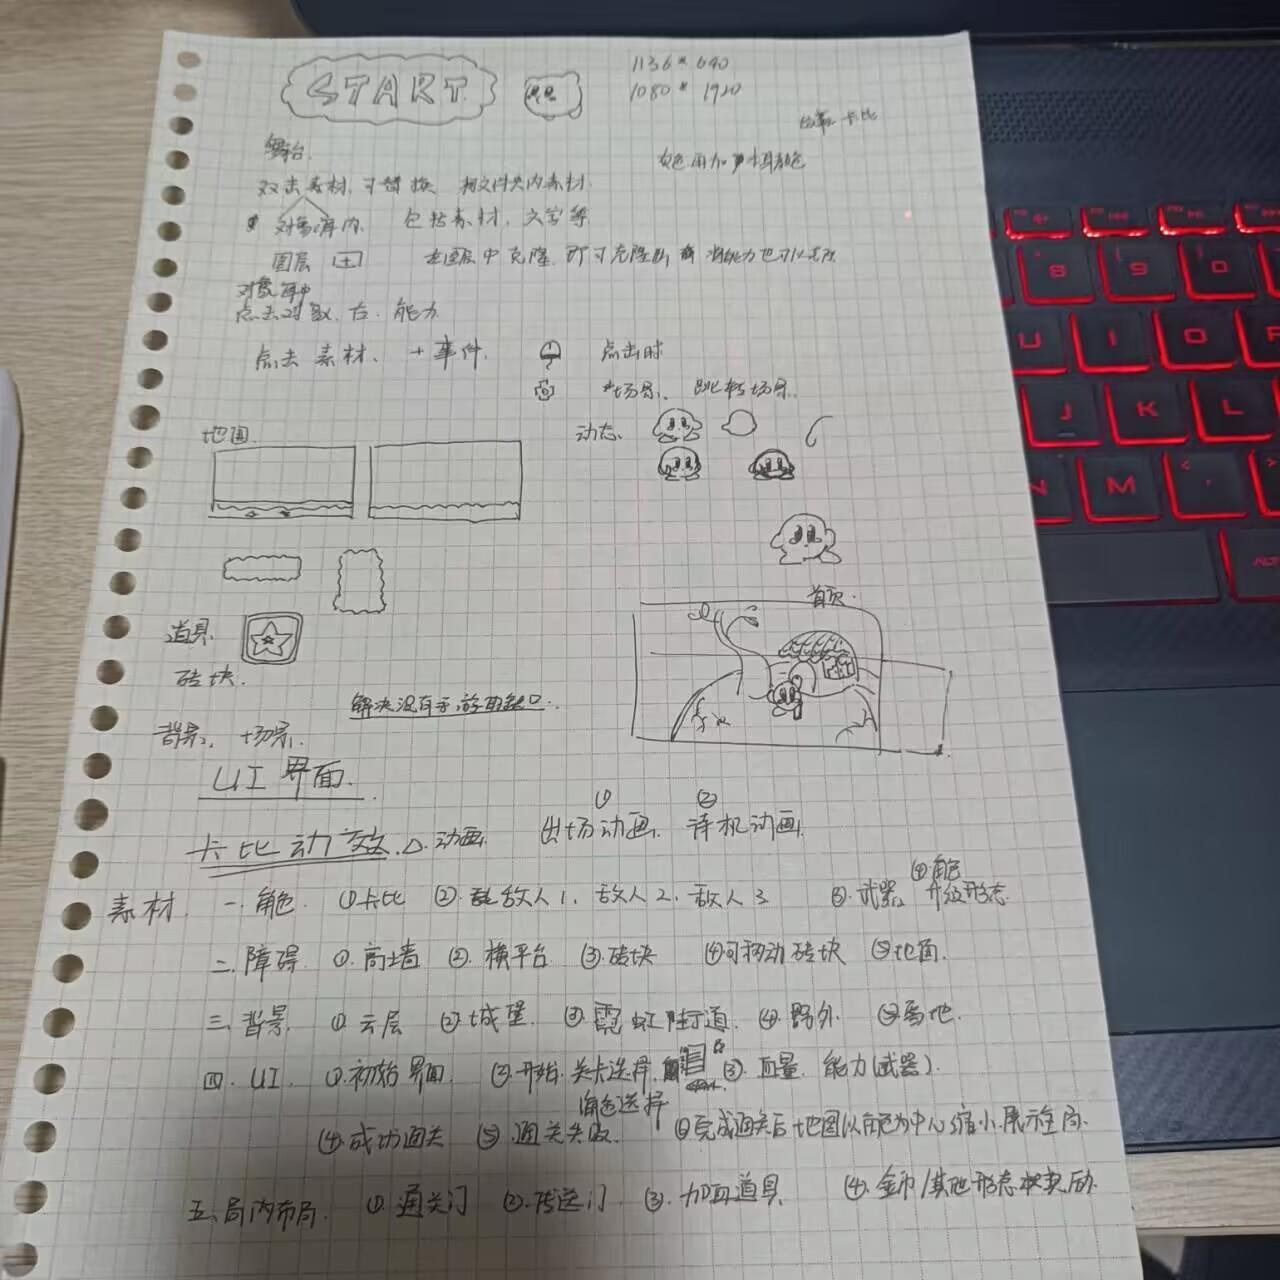 START
1136*640
1080*1920
卡比
舞台.
双击素材,可替换 文件夹内素材.
对象库内. 包括素材,文字等
图层 在图层中克隆,即可克隆 能力也可以
对象库中
点击对象,右.能力
点击素材、+事件. 点击时
*场景、跳转场景.
地图.
动态、
首页.
道具.
砖块.
解决没有手游的缺口.
背景、+场景.
UI界面.
① ②
卡比动效.△.动画. 出场动画. 待机动画.
④角色
素材. 一.角色. ①卡比 ②.敌人1、敌人2、敌人3 ③.武器、升级形态.
二.障碍. ①.高墙 ②.横平台. ③砖块 ④可移动砖块 ⑤地面.
三.背景. ①云层 ②城堡. ③霓虹街道. ④野外. ⑤雪地.
四.UI. ①.初始界面. ②.开始.关卡选择. ③.血量.能力(武器).
角色选择
④成功通关 ⑤.通关失败. ⑥完成通关后地图以角色为中心缩小.展示全局.
五.局内布局. ①.通关门 ②.传送门 ③.加血道具. ④.金币/其他形态状奖励.